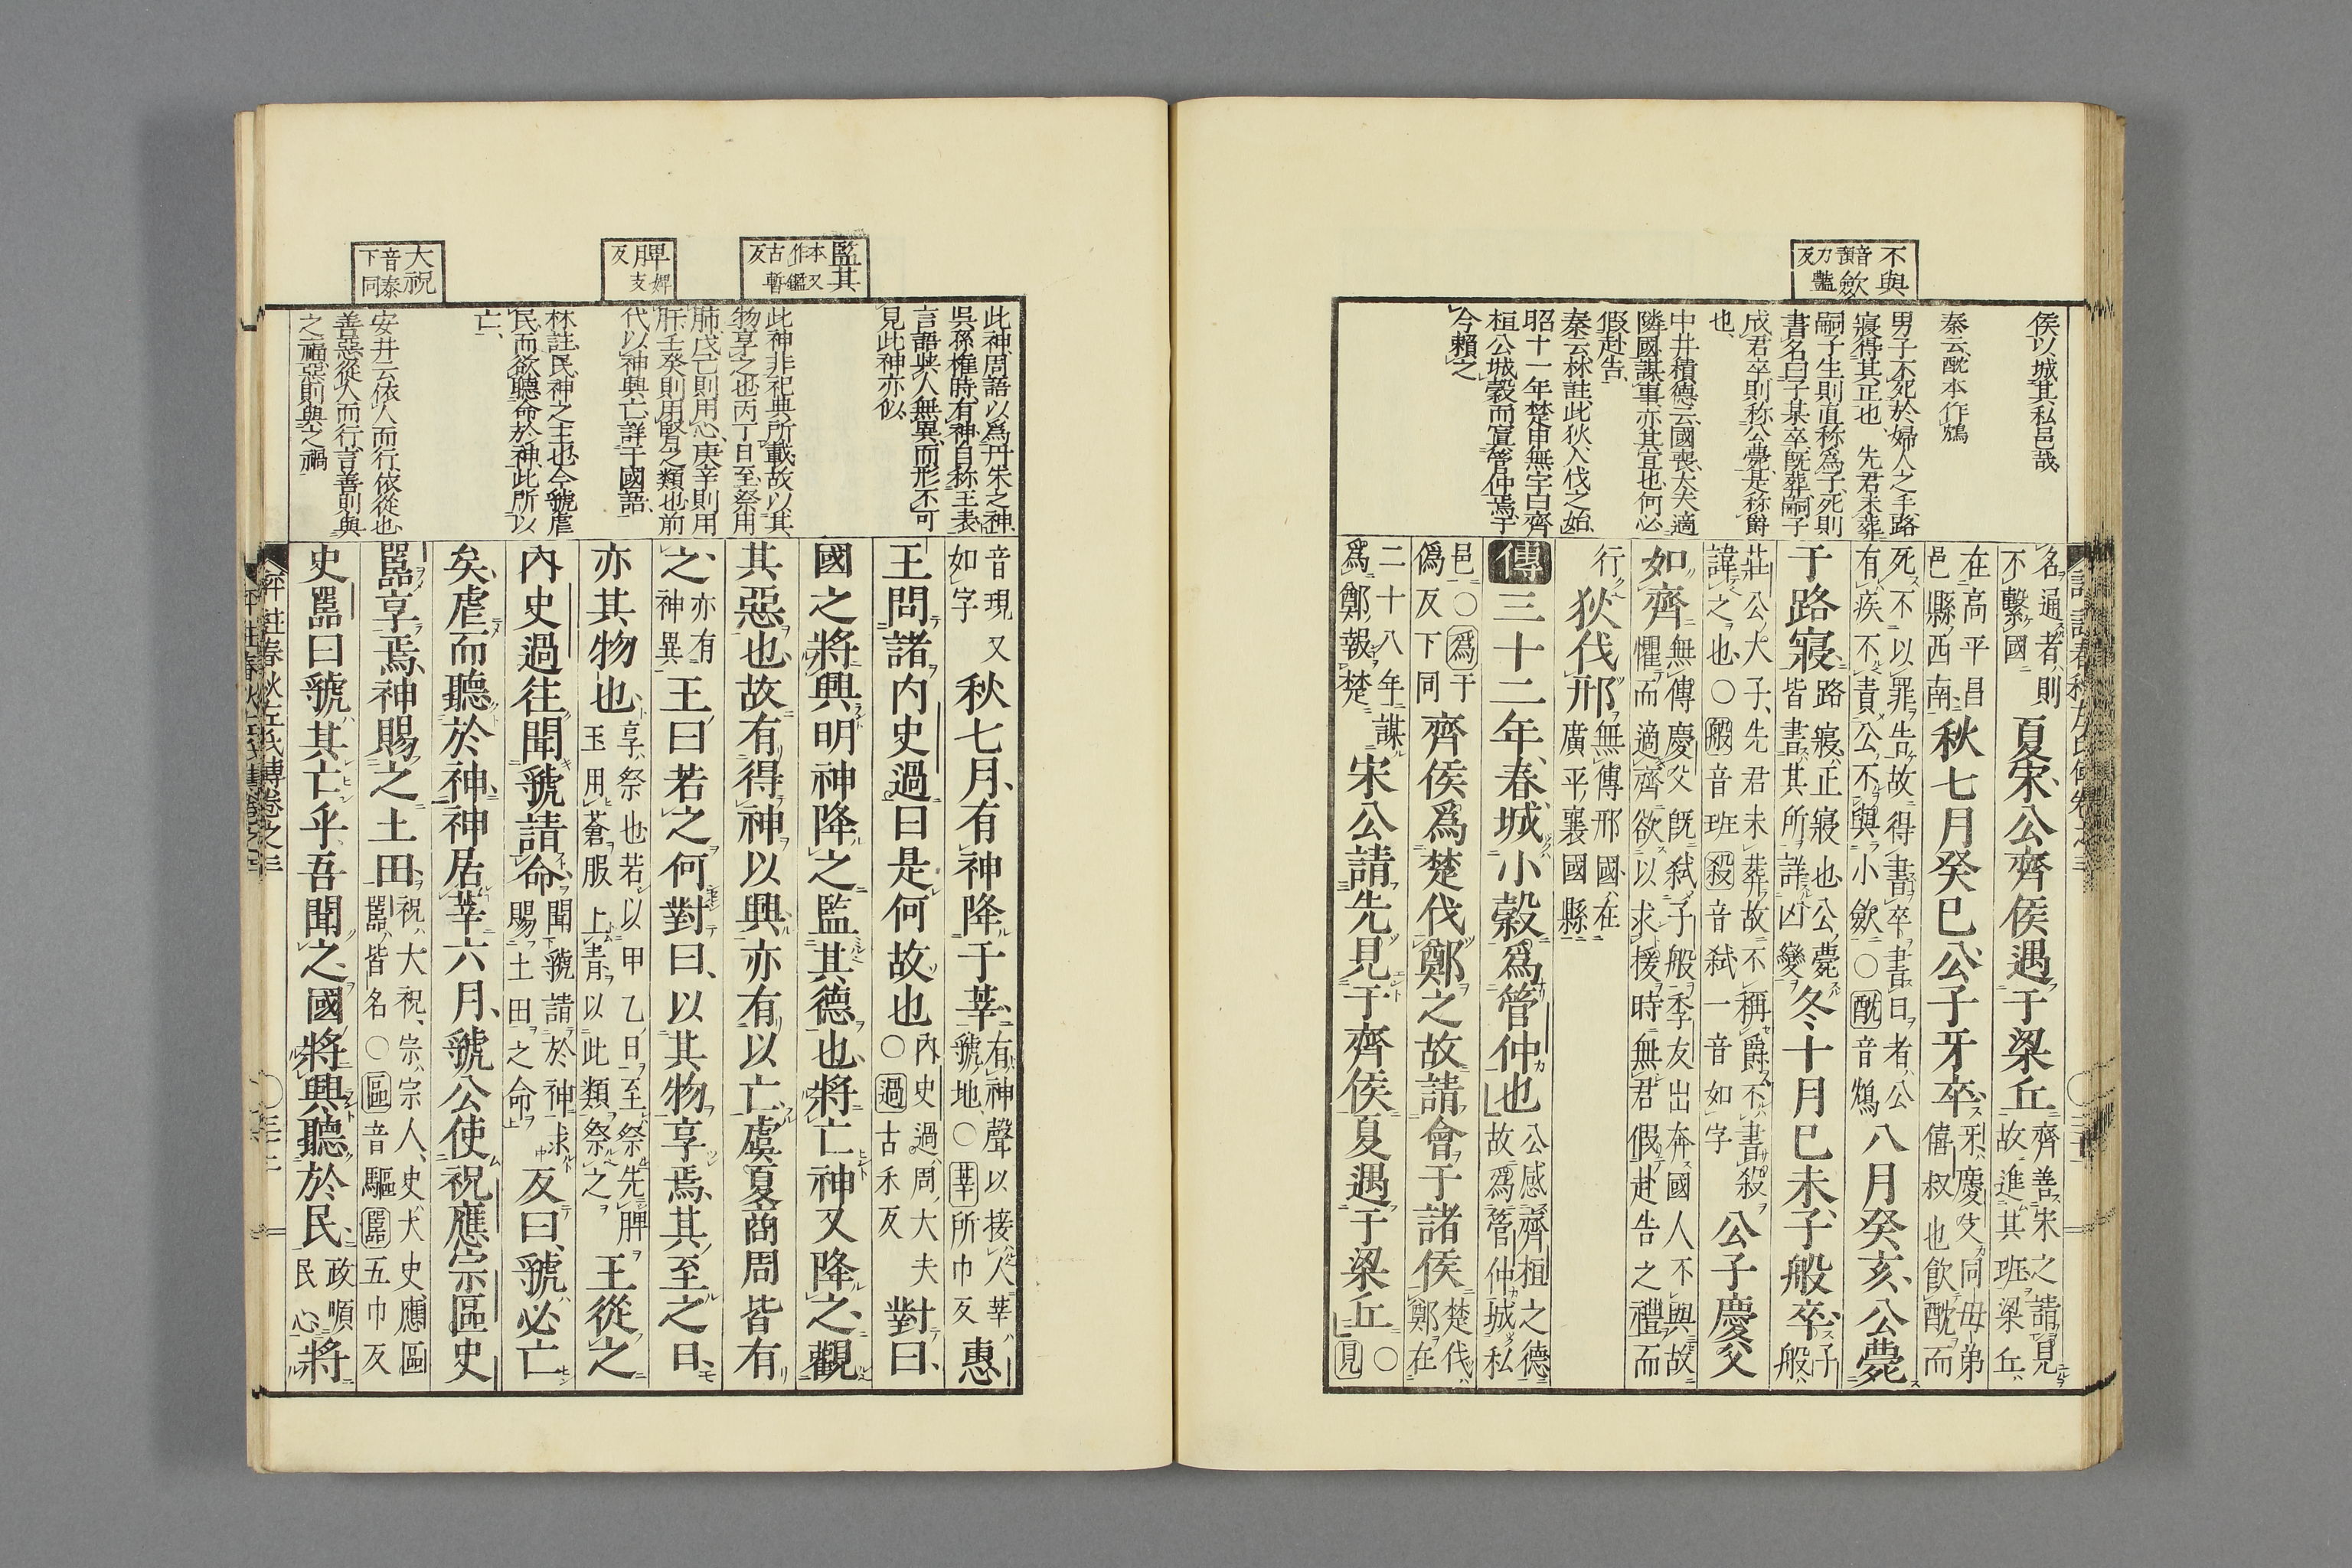 不與
音預
歛
力艷反
侯以城其私邑哉
秦云酖本作鴆
男子不死於婦人之手路
寢得其正也 先君未葬
嗣子生則直称為子死則
書名曰子某卒既葬嗣子
成君卒則称公薨是称爵
也
中井積德云國喪大夫適
隣國謀事亦其宜也何必
假赴告
秦云林註此狄入伐之始
昭十一年楚申無宇曰齊
桓公城穀而寘管仲焉于
今賴之
名通者則不繫國夏宋公齊侯遇于梁丘齊善宋之請見故進其班梁丘
在高平昌邑縣西南秋七月癸巳公子牙卒牙慶父同母弟僖叔也飲酖而
死不以罪告故得書卒書日者公有疾不責公不與小歛○酖音鴆八月癸亥公薨
于路寢路寢正寢也公薨皆書其所詳凶變冬十月己未子般卒子般
莊公大子先君未葬故不稱爵不書殺諱之也○般音班殺音弒一音如字公子慶父
如齊無傳慶父既弒子般季友出奔國人不與故懼而適齊欲以求援時無君假赴告之禮而
行狄伐邢無傳邢國在廣平襄國縣
傳三十二年春城小穀爲管仲也公感齊桓之德故爲管仲城私
邑○爲于僞反下同齊侯爲楚伐鄭之故請會于諸侯楚伐鄭在
二十八年謀爲鄭報楚宋公請先見于齊侯夏遇于梁丘○見
監其
本又作鑑
古暫反
脾
婢支反
大祝
音泰下同
此神周語以爲丹朱之神
吳孫權時有神自称王表
言語與人無異而形不可
見此神亦似
此神非祀典所載故以其
物享之也丙丁日至祭用
肺戊己則用心庚辛則用
肝壬癸則用腎之類也前
代以神興亡詳于國語
林註民神之主也今虢虐
民而欲聽命於神此所以
亡
安井云依人而行依從也
善惡從人而行言善則與
之福惡則與之禍
音現又如字秋七月有神降于莘有神聲以接人莘虢地○莘所巾反惠
王問諸内史過曰是何故也內史過周大夫○過古禾反對曰
國之將興明神降之監其德也將亡神又降之觀
其惡也故有得神以興亦有以亡虞夏商周皆有
之亦有神異王曰若之何對曰以其物享焉其至之日
亦其物也享祭也若以甲乙日至祭先脾玉用蒼服上青以此類祭之王從之
內史過往聞虢請命聞虢請於神求賜土田之命反曰虢必亡
矣虐而聽於神神居莘六月虢公使祝應宗區史
嚚享焉神賜之土田祝大祝宗宗人史大史應區嚚皆名○區音驅嚚五巾反
史嚚曰虢其亡乎吾聞之國將興聽於民政順民心將